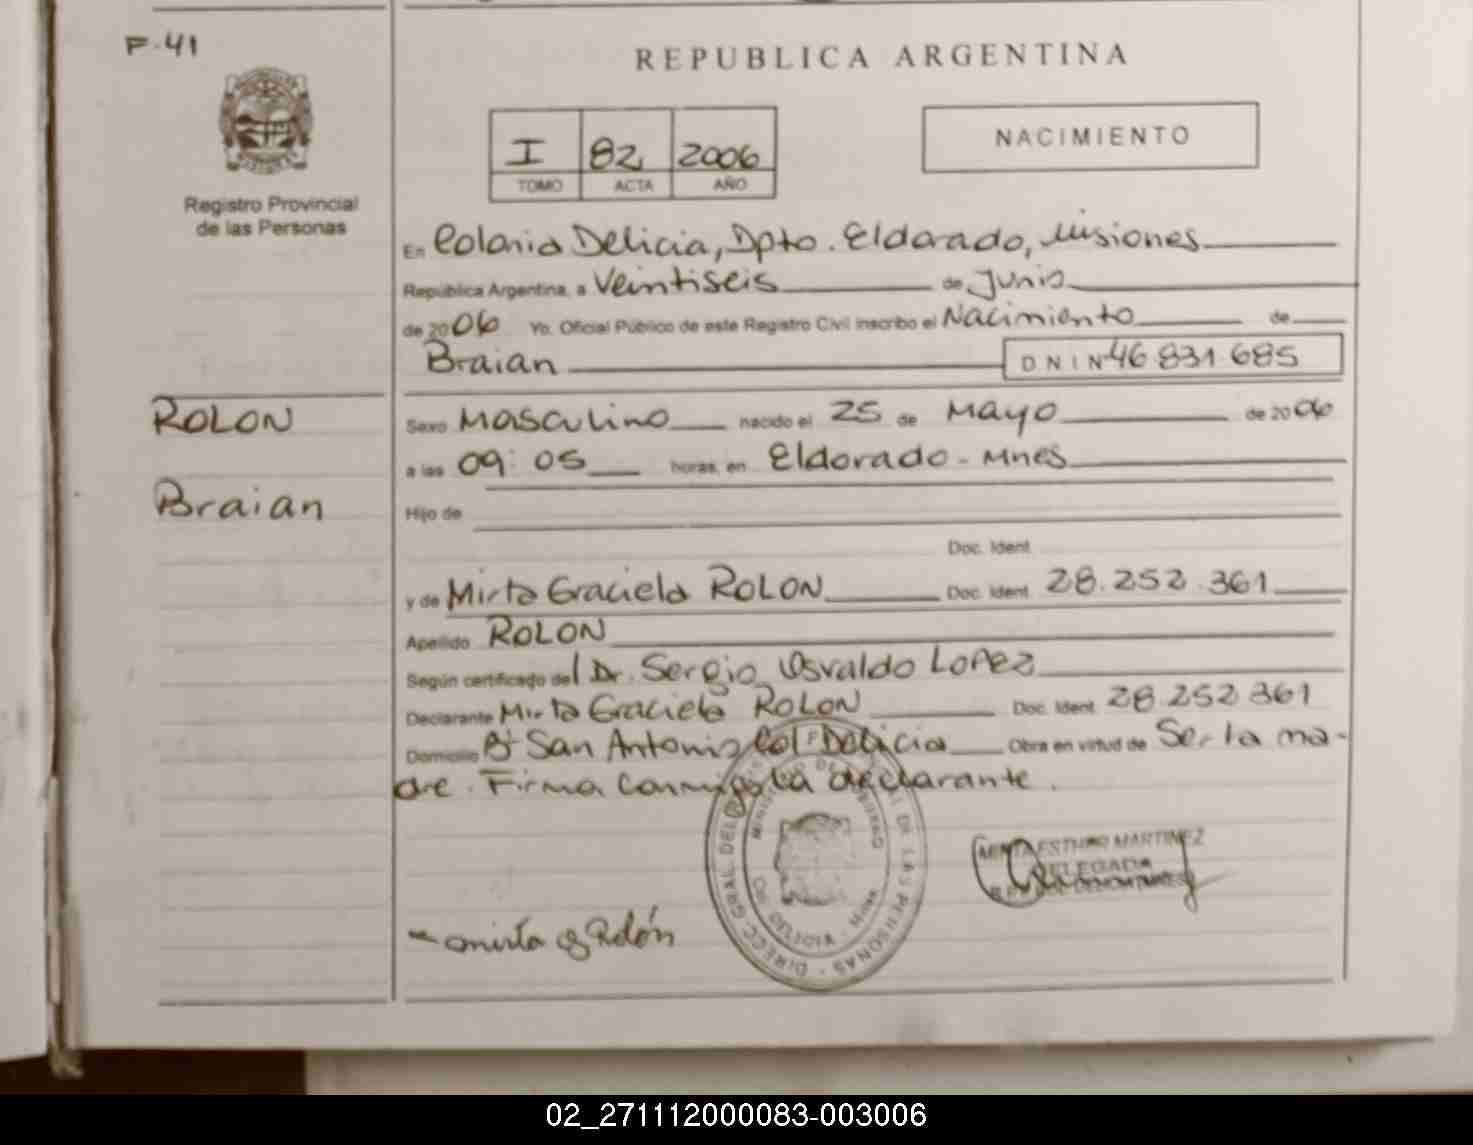 F-41
REPUBLICA ARGENTINA
I 82 2006
TOMO ACTA AÑO
NACIMIENTO
Registro Provincial
de las Personas
En Colonia Delicia, Dpto. Eldorado, Misiones
República Argentina, a Veintiseis de Junio
de 2006 Yo. Oficial Público de este Registro Civil inscribo el Nacimiento de
Braian DNI Nº 46 831 685
ROLON
Sexo Masculino nacido el 25 de Mayo de 2006
a las 09:05 horas, en Eldorado - Mnes
Braian
Hijo de
Doc. Ident.
y de Mirta Graciela ROLON Doc. Ident. 28.252.361
Apellido ROLON
Según certificado del Dr. Sergio Osvaldo LOPEZ
Declarante Mirta Graciela ROLON Doc. Ident. 28 252 361
Domicilio Bº San Antonio Col Delicia Obra en virtud de Ser la ma-
dre. Firma Conmigo la declarante.
MIRTA ESTHER MARTINEZ
DELEGADA
DIRECC. GRAL. DEL DE LAS PERSONAS
mirta g Rolón
02_271112000083-003006